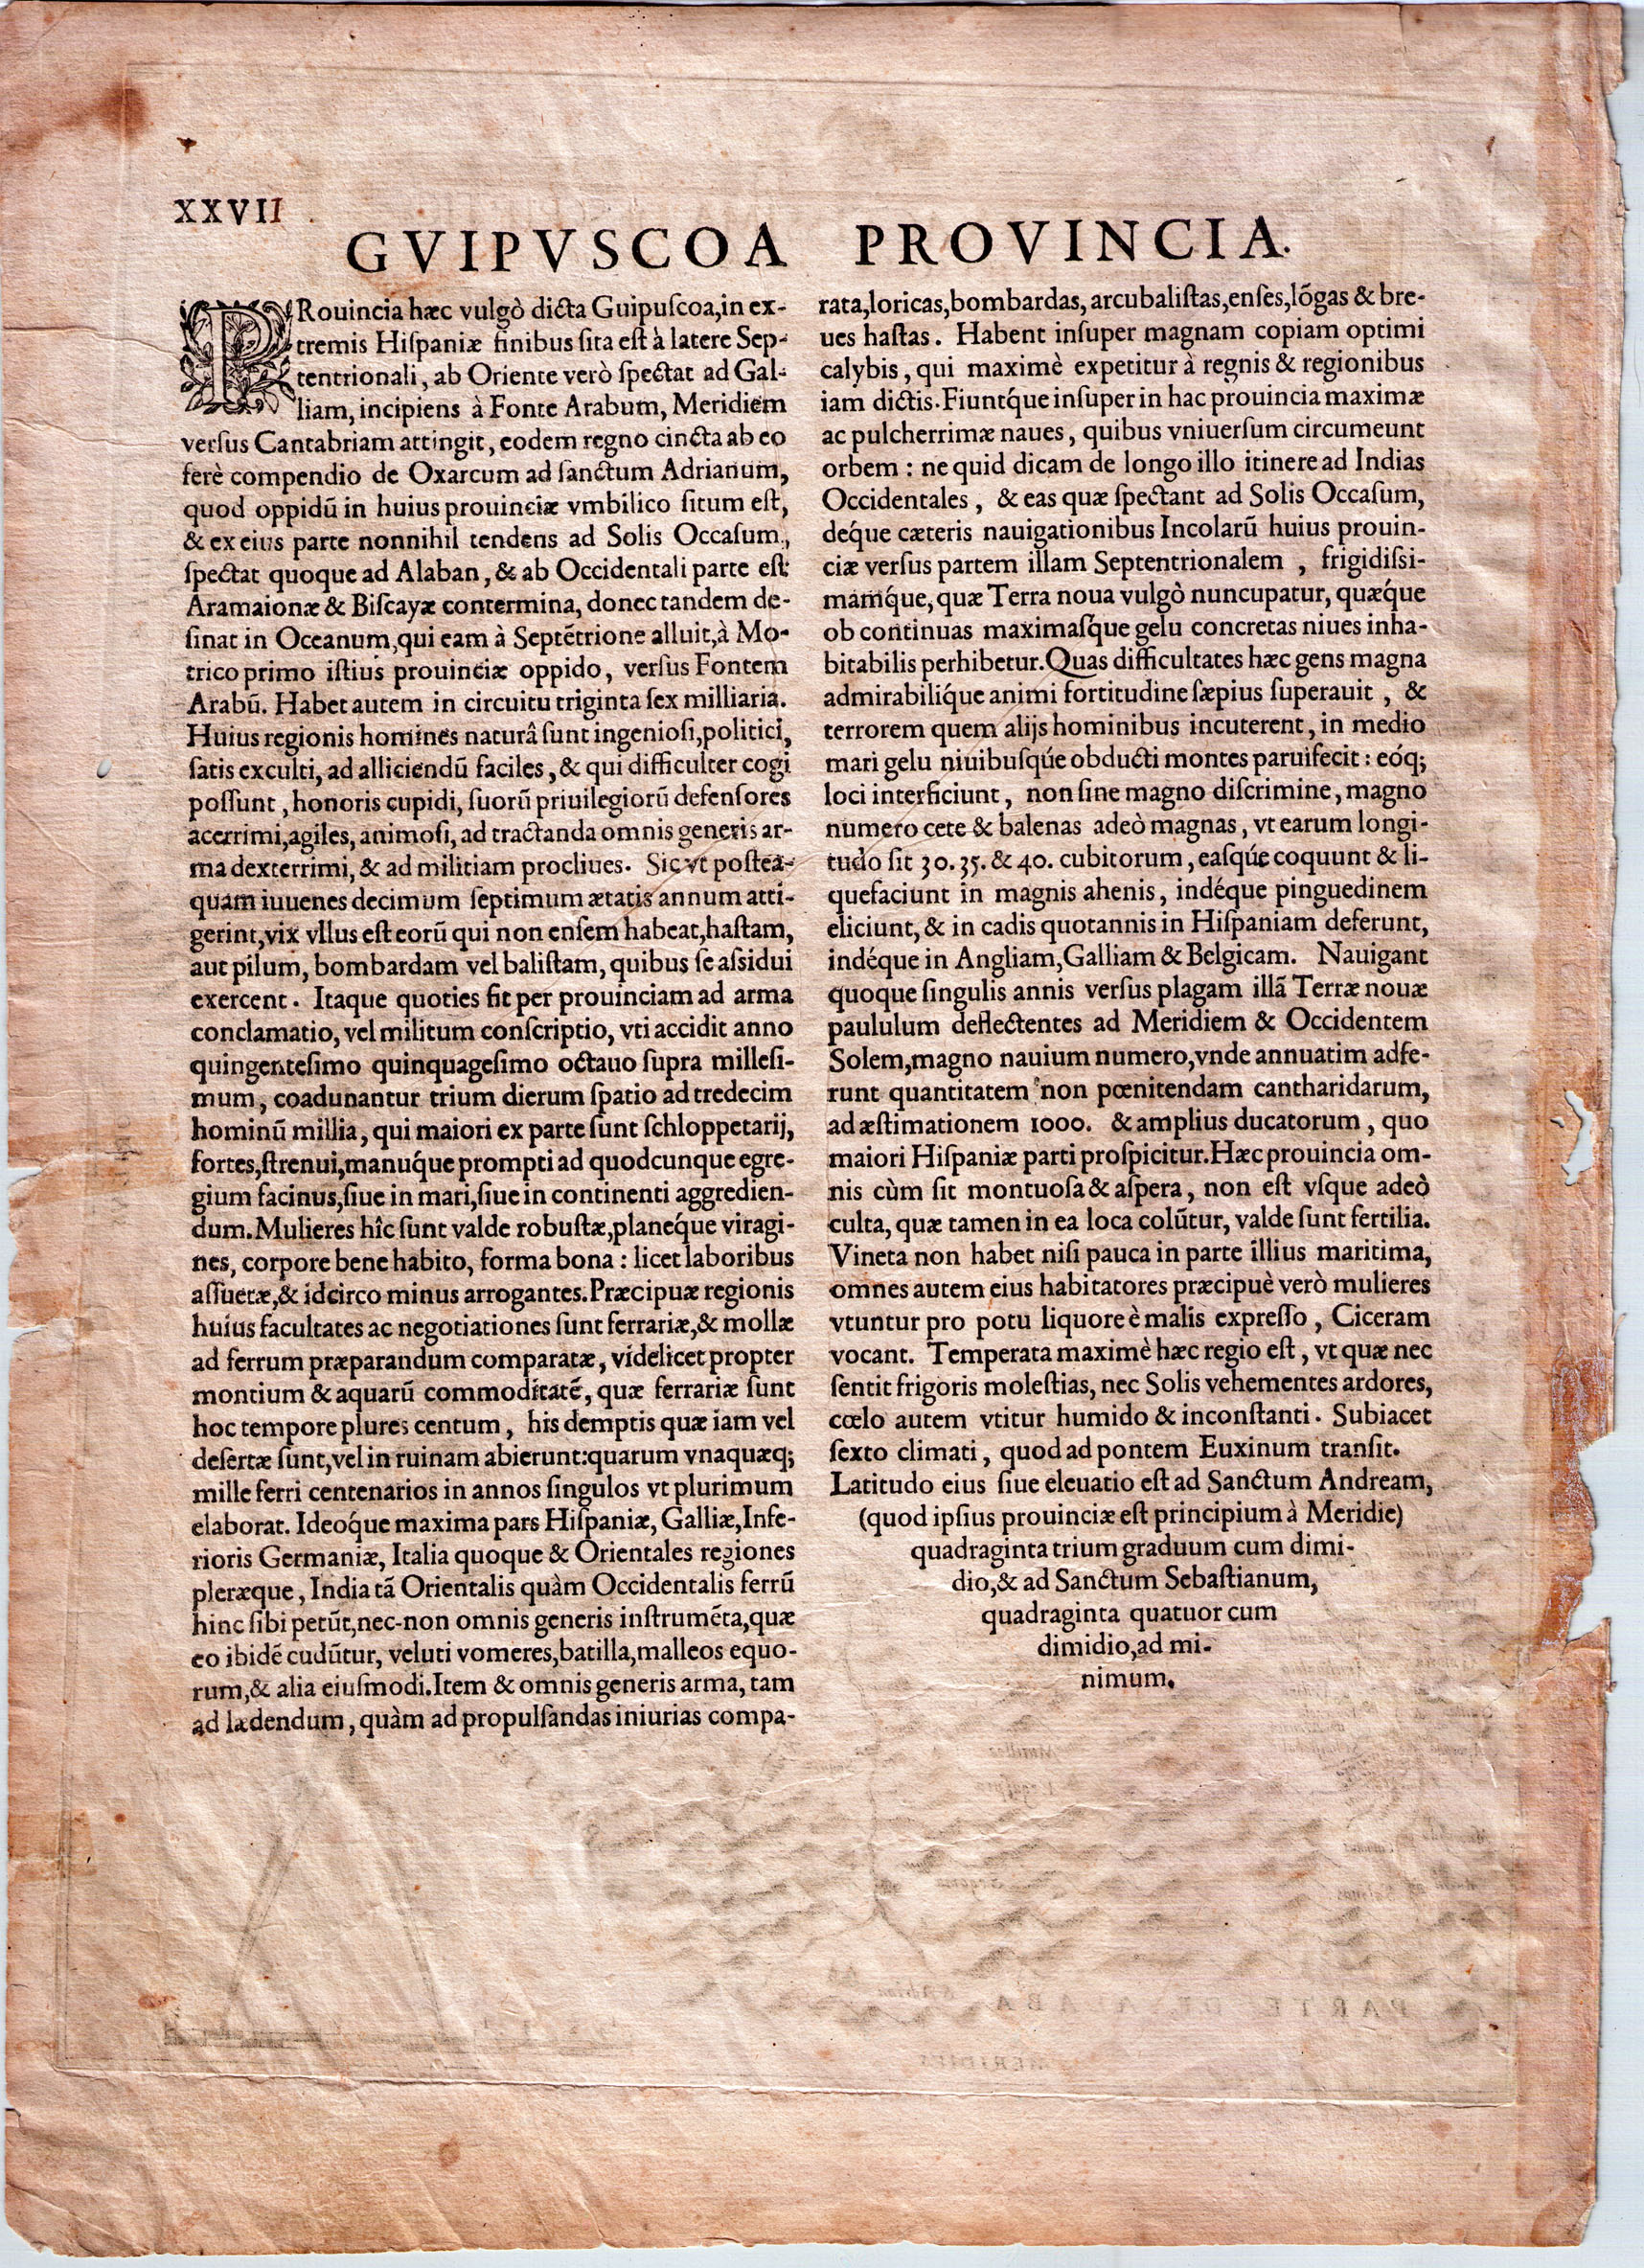 XXVII
GVIPVSCOA PROVINCIA.
PRouincia hæc vulgò dicta Guipuſcoa,in ex-
tremis Hiſpaniæ finibus ſita eſt à latere Sep-
tentrionali, ab Oriente verò ſpectat ad Gal-
liam, incipiens à Fonte Arabum, Meridiem
verſus Cantabriam attingit, eodem regno cincta ab eo
ferè compendio de Oxarcum ad ſanctum Adrianum,
quod oppidū in huius prouinciæ vmbilico ſitum eſt,
& ex eius parte nonnihil tendens ad Solis Occaſum,
ſpectat quoque ad Alaban, & ab Occidentali parte eſt
Aramaionæ & Biſcayæ contermina, donec tandem de-
ſinat in Oceanum,qui eam à Septētrione alluit,à Mo-
trico primo iſtius prouinciæ oppido, verſus Fontem
Arabū. Habet autem in circuitu triginta ſex milliaria.
Huius regionis homines naturâ ſunt ingenioſi,politici,
ſatis exculti, ad alliciendū faciles, & qui difficulter cogi
poſſunt, honoris cupidi, ſuorū priuilegiorū defenſores
acerrimi,agiles, animoſi, ad tractanda omnis generis ar-
ma dexterrimi, & ad militiam procliues. Sic vt poſtea-
quam iuuenes decimum ſeptimum ætatis annum atti-
gerint,vix vllus eſt eorū qui non enſem habeat,haſtam,
aut pilum, bombardam vel baliſtam, quibus ſe aſsidui
exercent. Itaque quoties fit per prouinciam ad arma
conclamatio, vel militum conſcriptio, vti accidit anno
quingenteſimo quinquageſimo octauo ſupra milleſi-
mum, coadunantur trium dierum ſpatio ad tredecim
hominū millia, qui maiori ex parte ſunt ſchloppetarij,
fortes,ſtrenui,manuq́ue prompti ad quodcunque egre-
gium facinus,ſiue in mari,ſiue in continenti aggredien-
dum.Mulieres hîc ſunt valde robuſtæ,planeq́ue viragi-
nes, corpore bene habito, forma bona : licet laboribus
aſſuetæ,& idcirco minus arrogantes.Præcipuæ regionis
huius facultates ac negotiationes ſunt ferrariæ,& mollæ
ad ferrum præparandum comparatæ, videlicet propter
montium & aquarū commoditatē, quæ ferrariæ ſunt
hoc tempore plures centum, his demptis quæ iam vel
deſertæ ſunt,vel in ruinam abierunt:quarum vnaquæq;
mille ferri centenarios in annos ſingulos vt plurimum
elaborat. Ideoq́ue maxima pars Hiſpaniæ, Galliæ,Infe-
rioris Germaniæ, Italia quoque & Orientales regiones
pleræque, India tā Orientalis quàm Occidentalis ferrū
hinc ſibi petūt,nec-non omnis generis inſtrumēta,quæ
eo ibidē cudūtur, veluti vomeres,batilla,malleos equo-
rum,& alia eiuſmodi.Item & omnis generis arma, tam
ad lædendum, quàm ad propulſandas iniurias compa-
rata,loricas,bombardas, arcubaliſtas,enſes,lōgas & bre-
ues haſtas. Habent inſuper magnam copiam optimi
calybis, qui maximè expetitur à regnis & regionibus
iam dictis.Fiuntq́ue inſuper in hac prouincia maximæ
ac pulcherrimæ naues, quibus vniuerſum circumeunt
orbem : ne quid dicam de longo illo itinere ad Indias
Occidentales, & eas quæ ſpectant ad Solis Occaſum,
déque cæteris nauigationibus Incolarū huius prouin-
ciæ verſus partem illam Septentrionalem, frigidiſsi-
mamq́ue, quæ Terra noua vulgò nuncupatur, quæq́ue
ob continuas maximaſque gelu concretas niues inha-
bitabilis perhibetur.Quas difficultates hæc gens magna
admirabiliq́ue animi fortitudine ſæpius ſuperauit, &
terrorem quem alijs hominibus incuterent, in medio
mari gelu niuibuſq́ue obducti montes paruifecit : eóq;
loci interficiunt, non ſine magno diſcrimine, magno
numero cete & balenas adeò magnas, vt earum longi-
tudo ſit 30. 35. & 40. cubitorum, eaſq́ue coquunt & li-
quefaciunt in magnis ahenis, indéque pinguedinem
eliciunt, & in cadis quotannis in Hiſpaniam deferunt,
indéque in Angliam,Galliam & Belgicam. Nauigant
quoque ſingulis annis verſus plagam illā Terræ nouæ
paululum deflectentes ad Meridiem & Occidentem
Solem,magno nauium numero,vnde annuatim adfe-
runt quantitatem non pœnitendam cantharidarum,
ad æſtimationem 1000. & amplius ducatorum, quo
maiori Hiſpaniæ parti proſpicitur.Hæc prouincia om-
nis cùm ſit montuoſa & aſpera, non eſt vſque adeò
culta, quæ tamen in ea loca colūtur, valde ſunt fertilia.
Vineta non habet niſi pauca in parte illius maritima,
omnes autem eius habitatores præcipuè verò mulieres
vtuntur pro potu liquore è malis expreſſo, Ciceram
vocant. Temperata maximè hæc regio eſt, vt quæ nec
ſentit frigoris moleſtias, nec Solis vehementes ardores,
cœlo autem vtitur humido & inconſtanti. Subiacet
ſexto climati, quod ad pontem Euxinum tranſit.
Latitudo eius ſiue eleuatio eſt ad Sanctum Andream,
(quod ipſius prouinciæ eſt principium à Meridie)
quadraginta trium graduum cum dimi-
dio,& ad Sanctum Sebaſtianum,
quadraginta quatuor cum
dimidio,ad mi-
nimum.